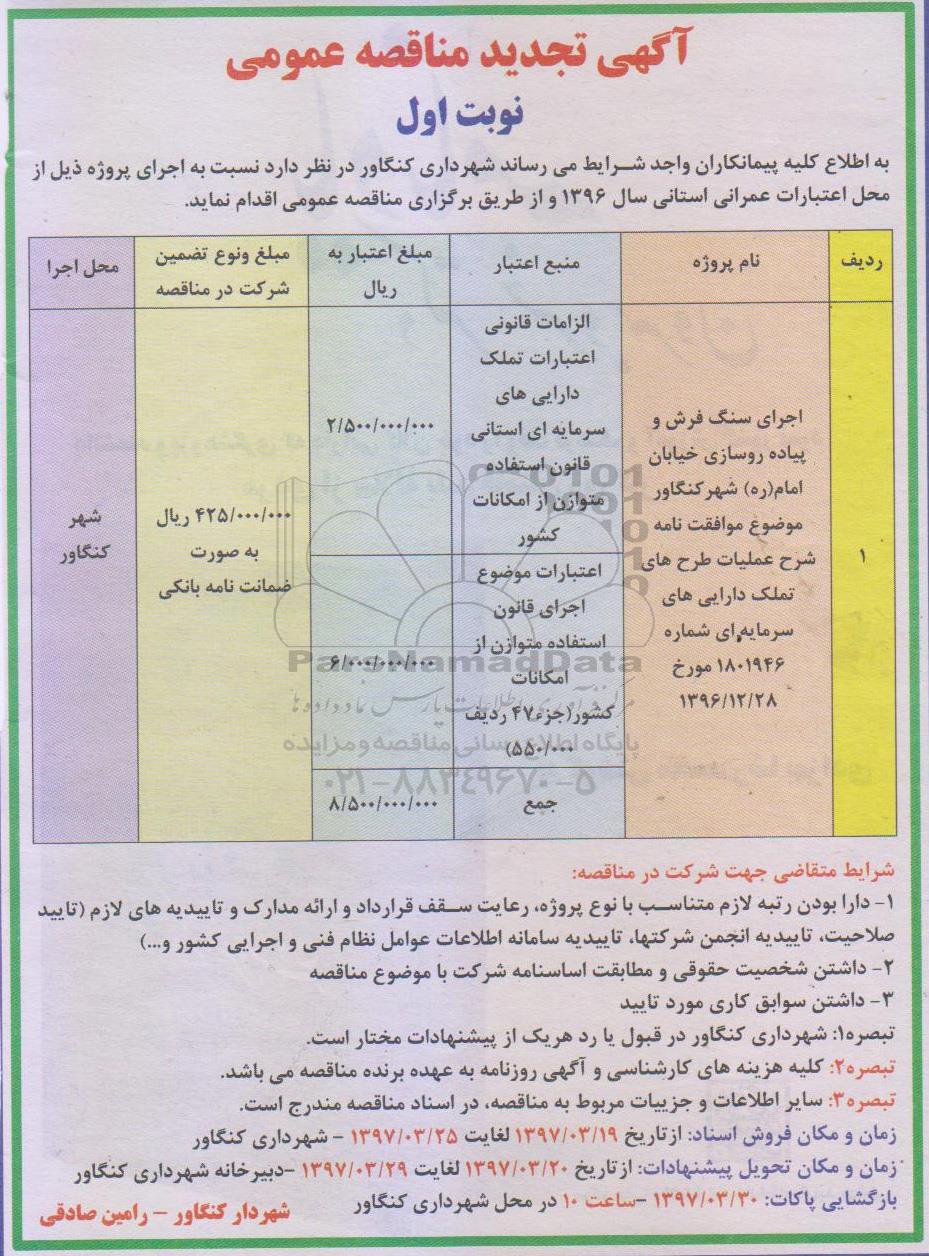 آگهی تجدید مناقصه عمومی
نوبت اول
به اطلاع کلیه پیمانکاران واجد شرایط می رساند شهرداری کنگاور در نظر دارد نسبت به اجرای پروژه ذیل از
محل اعتبارات عمرانی استانی سال ۱۳۹۶ و از طریق برگزاری مناقصه عمومی اقدام نماید.
ردیف
نام پروژه
منبع اعتبار
مبلغ اعتبار به
ریال
مبلغ ونوع تضمین
شرکت در مناقصه
محل اجرا
۱
اجرای سنگ فرش و
پیاده روسازی خیابان
امام(ره) شهرکنگاور
موضوع موافقت نامه
شرح عملیات طرح های
تملک دارایی های
سرمایه ای شماره
۱۸۰۱۹۴۶ مورخ
۱۳۹۶/۱۲/۲۸
الزامات قانونی
اعتبارات تملک
دارایی های
سرمایه ای استانی
قانون استفاده
متوازن از امکانات
کشور
۲/۵۰۰/۰۰۰/۰۰۰
اعتبارات موضوع
اجرای قانون
استفاده متوازن از
امکانات
کشور(جزء۴۷ ردیف
۵۵۰/۰۰۰)
۶/۰۰۰/۰۰۰/۰۰۰
جمع
۸/۵۰۰/۰۰۰/۰۰۰
۴۲۵/۰۰۰/۰۰۰ ریال
به صورت
ضمانت نامه بانکی
شهر
کنگاور
ParsNamadData
مرکز فرآوری اطلاعات پارس نماد داده ها
پایگاه اطلاع رسانی مناقصه و مزایده
۰۲۱-۸۸۳۴۹۶۷۰-۵
شرایط متقاضی جهت شرکت در مناقصه:
۱- دارا بودن رتبه لازم متناسب با نوع پروژه، رعایت سقف قرارداد و ارائه مدارک و تاییدیه های لازم (تایید
صلاحیت، تاییدیه انجمن شرکتها، تاییدیه سامانه اطلاعات عوامل نظام فنی و اجرایی کشور و...)
۲- داشتن شخصیت حقوقی و مطابقت اساسنامه شرکت با موضوع مناقصه
۳- داشتن سوابق کاری مورد تایید
تبصره۱: شهرداری کنگاور در قبول یا رد هریک از پیشنهادات مختار است.
تبصره۲: کلیه هزینه های کارشناسی و آگهی روزنامه به عهده برنده مناقصه می باشد.
تبصره۳: سایر اطلاعات و جزییات مربوط به مناقصه، در اسناد مناقصه مندرج است.
زمان و مکان فروش اسناد: ازتاریخ ۱۳۹۷/۰۳/۱۹ لغایت ۱۳۹۷/۰۳/۲۵ - شهرداری کنگاور
زمان و مکان تحویل پیشنهادات: ازتاریخ ۱۳۹۷/۰۳/۲۰ لغایت ۱۳۹۷/۰۳/۲۹ -دبیرخانه شهرداری کنگاور
بازگشایی پاکات: ۱۳۹۷/۰۳/۳۰ -ساعت ۱۰ در محل شهرداری کنگاور
شهردار کنگاور - رامین صادقی